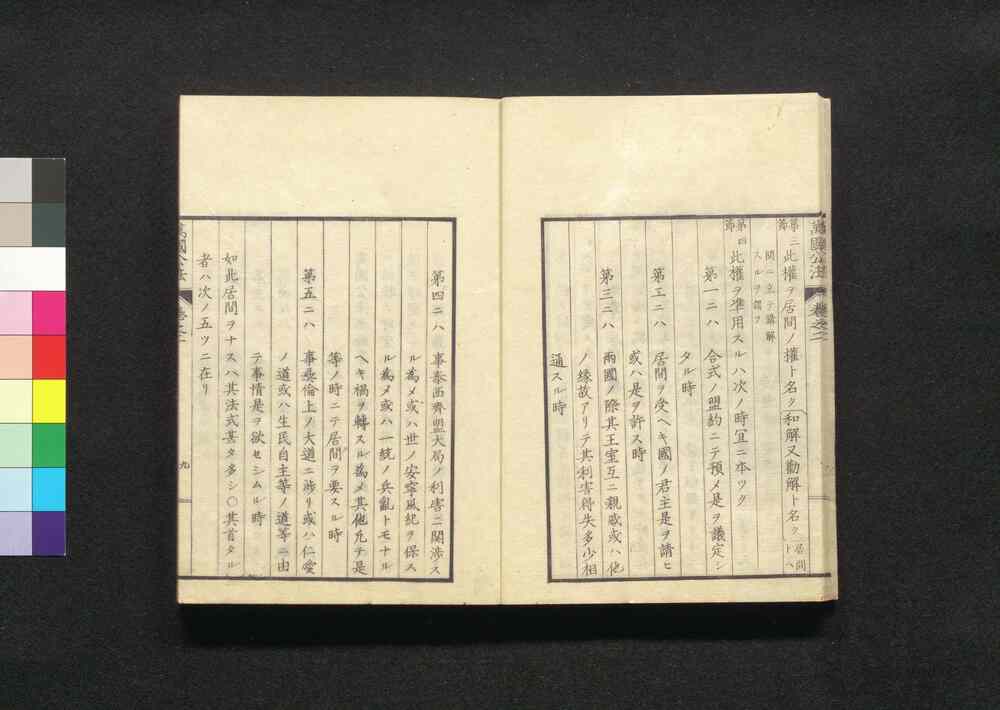 萬國公法 卷之二
第三節 此權ヲ居間ノ權ト名ク和解又勸解ト名ク居間トハ
間ニ立テ講解
スルヲ謂フ
第四節 此權ヲ準用スルハ次ノ時宜ニ本ツク
第一ニハ 合式ノ盟約ニテ預メ是ヲ議定シ
タル時
第二ニハ 居間ヲ受ヘキ國ノ君主是ヲ請ヒ
或ハ是ヲ許ス時
第三ニハ 兩國ノ際其王室互ニ親戚或ハ他
ノ緣故アリテ其利害得失多少相
通スル時
第四ニハ 事泰西齊盟大局ノ利害ニ關渉ス
ル爲メ或ハ世ノ安寧風紀ヲ保ス
ル爲メ或ハ一統ノ兵亂トモナル
ヘキ禍ヲ轉スル爲メ其他凢テ是
等ノ時ニテ居間ヲ要スル時
第五ニハ 事彜倫上ノ大道ニ渉リ或ハ仁愛
ノ道或ハ生民自主等ノ道等ニ由
テ事情是ヲ欲セシムル時
如此居間ヲナスハ其法式甚タ多シ○其首タル
者ハ次ノ五ツニ在リ
萬國公法 卷之二
九